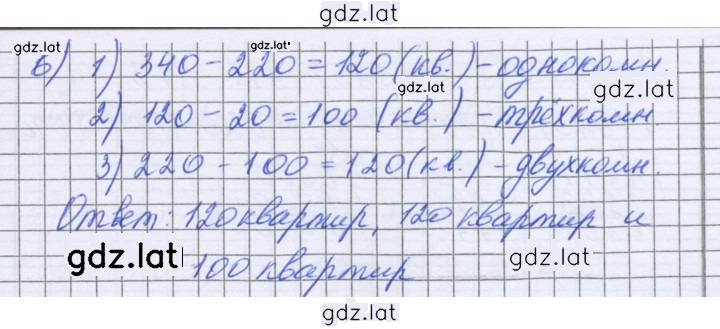 gdz.lat
gdz.lat gdz.lat
б) 1) 340 - 220 = 120 (кв.) - однокомн.
gdz.lat gdz.lat
2) 120 - 20 = 100 (кв.) - трёхкомн.
3) 220 - 100 = 120 (кв.) - двухкомн.
Ответ: 120 квартир, 120 квартир и
gdz.lat gdz.lat
100 квартир
gdz.lat